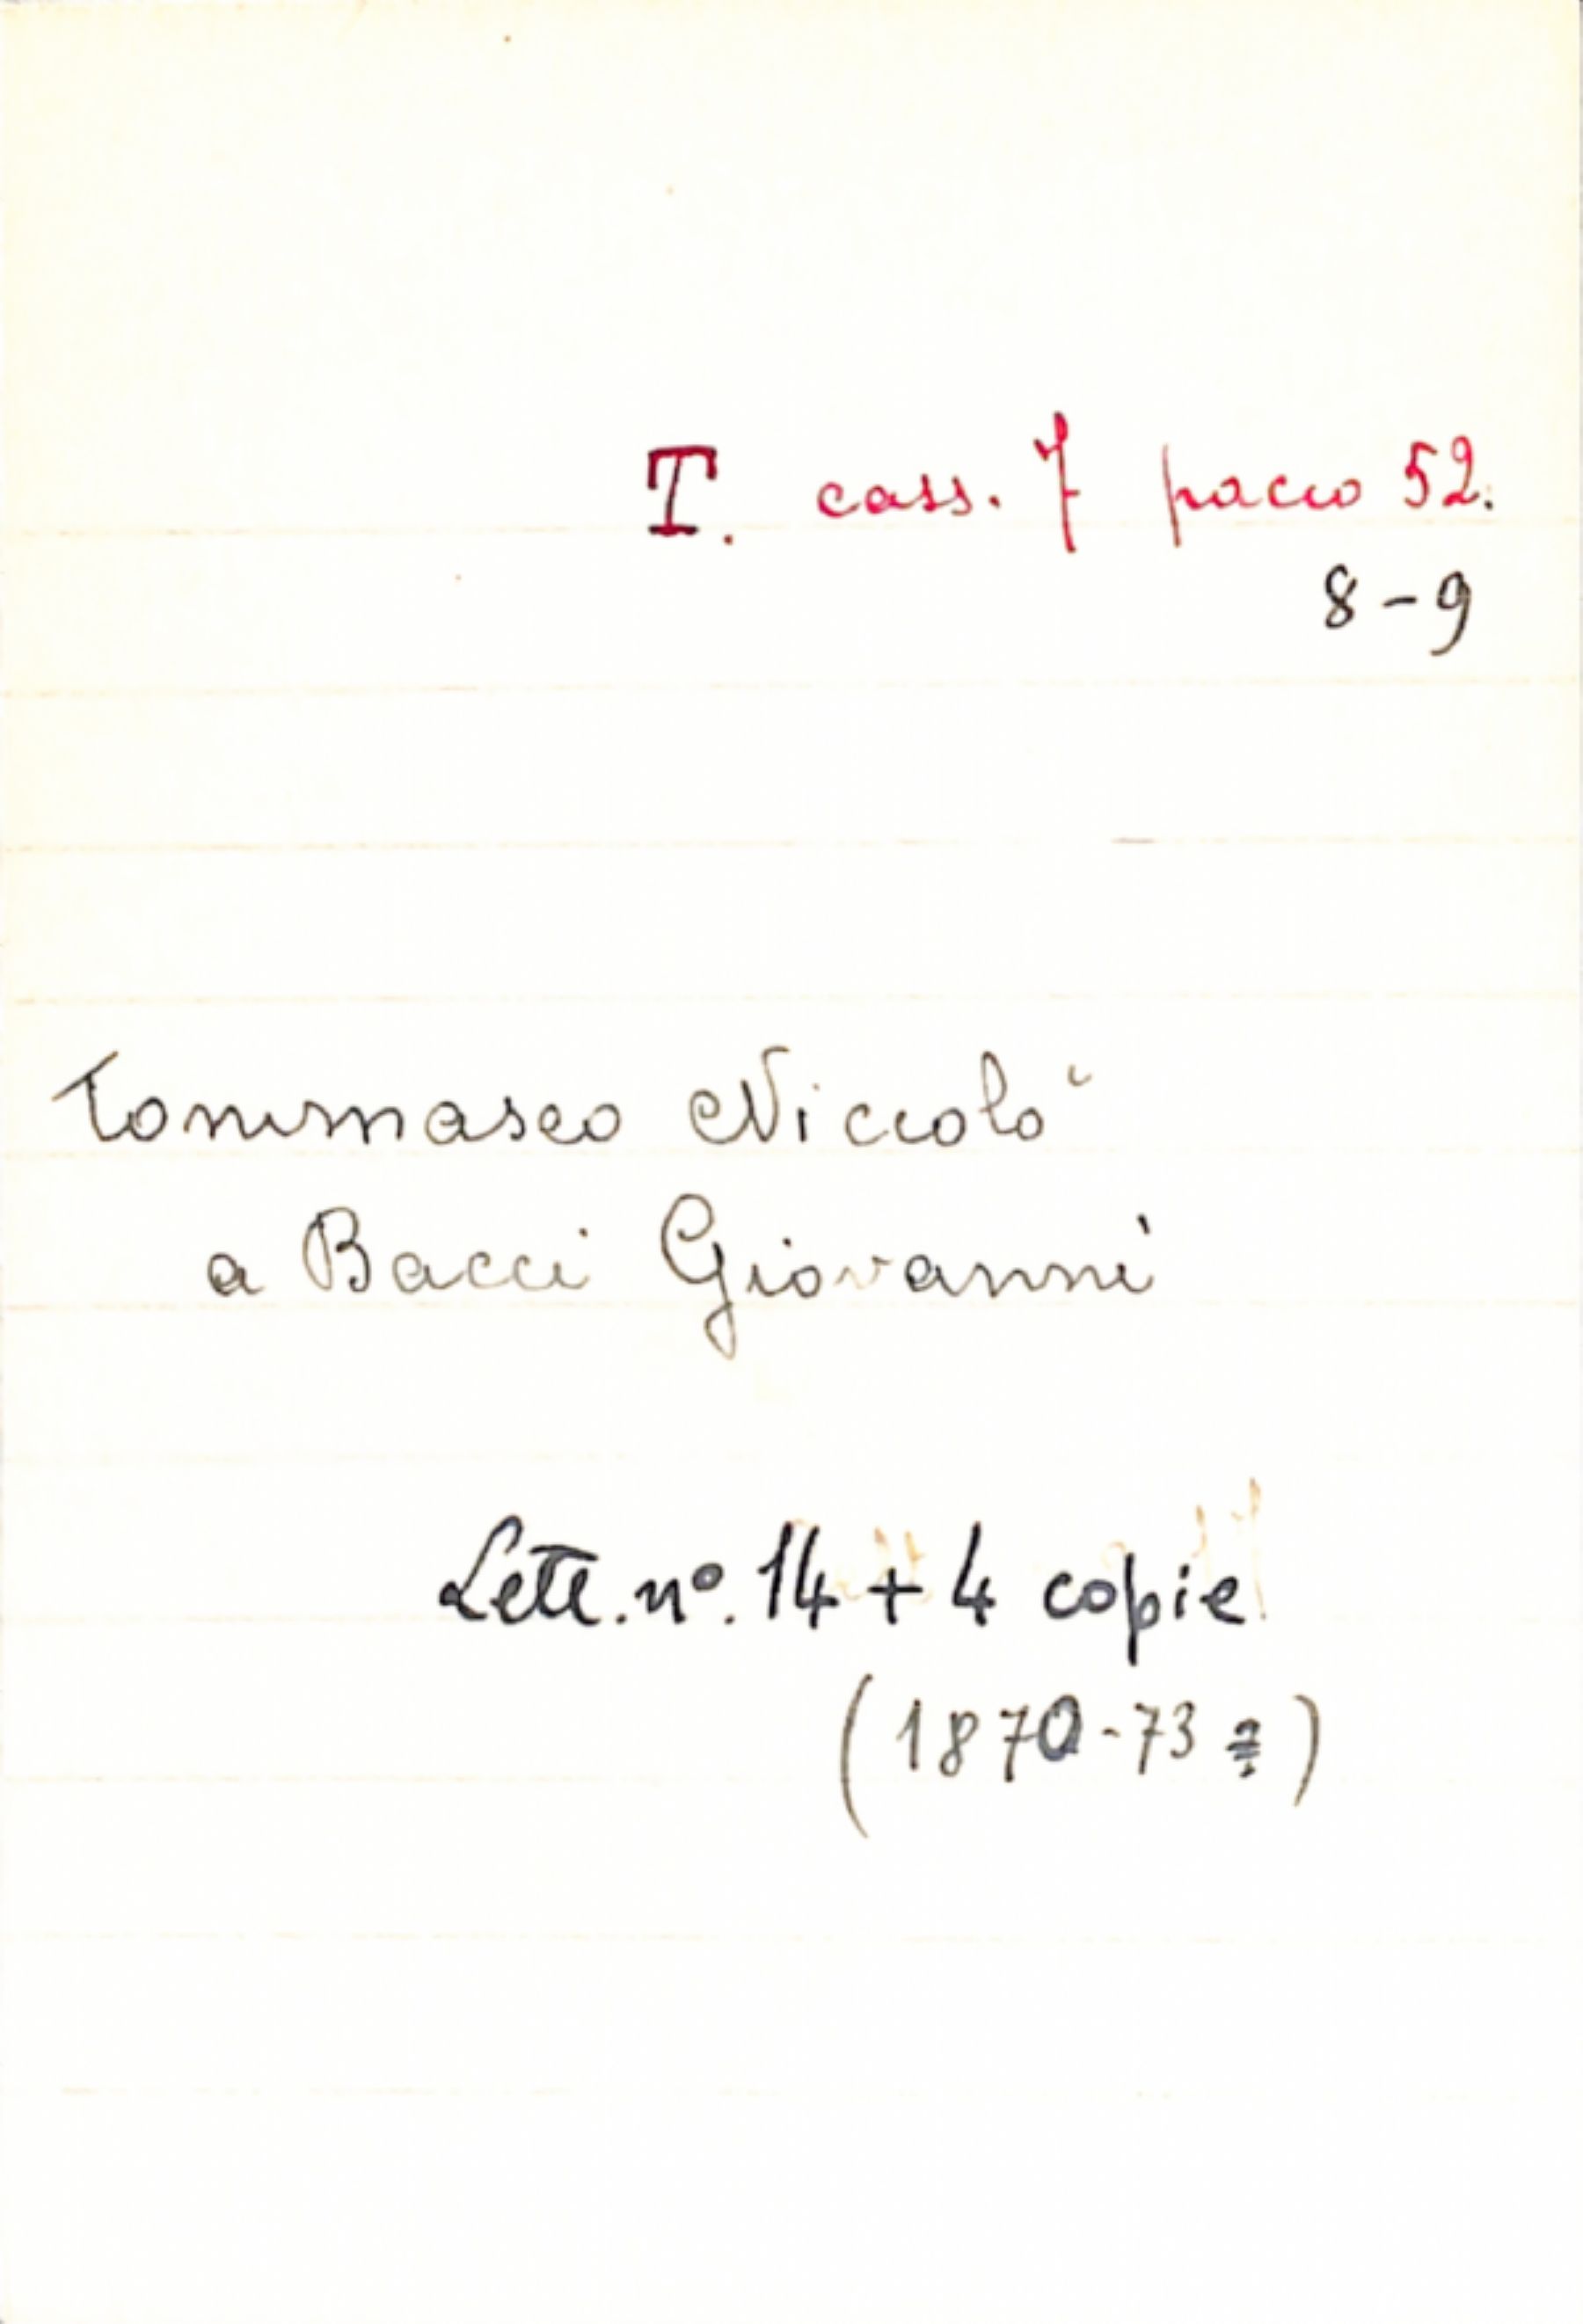 T. cass. 7 pacco 52.
8-9
Tommaseo Niccolò
a Bacci Giovanni
Lett. nº. 14 + 4 copie
(1870-73)